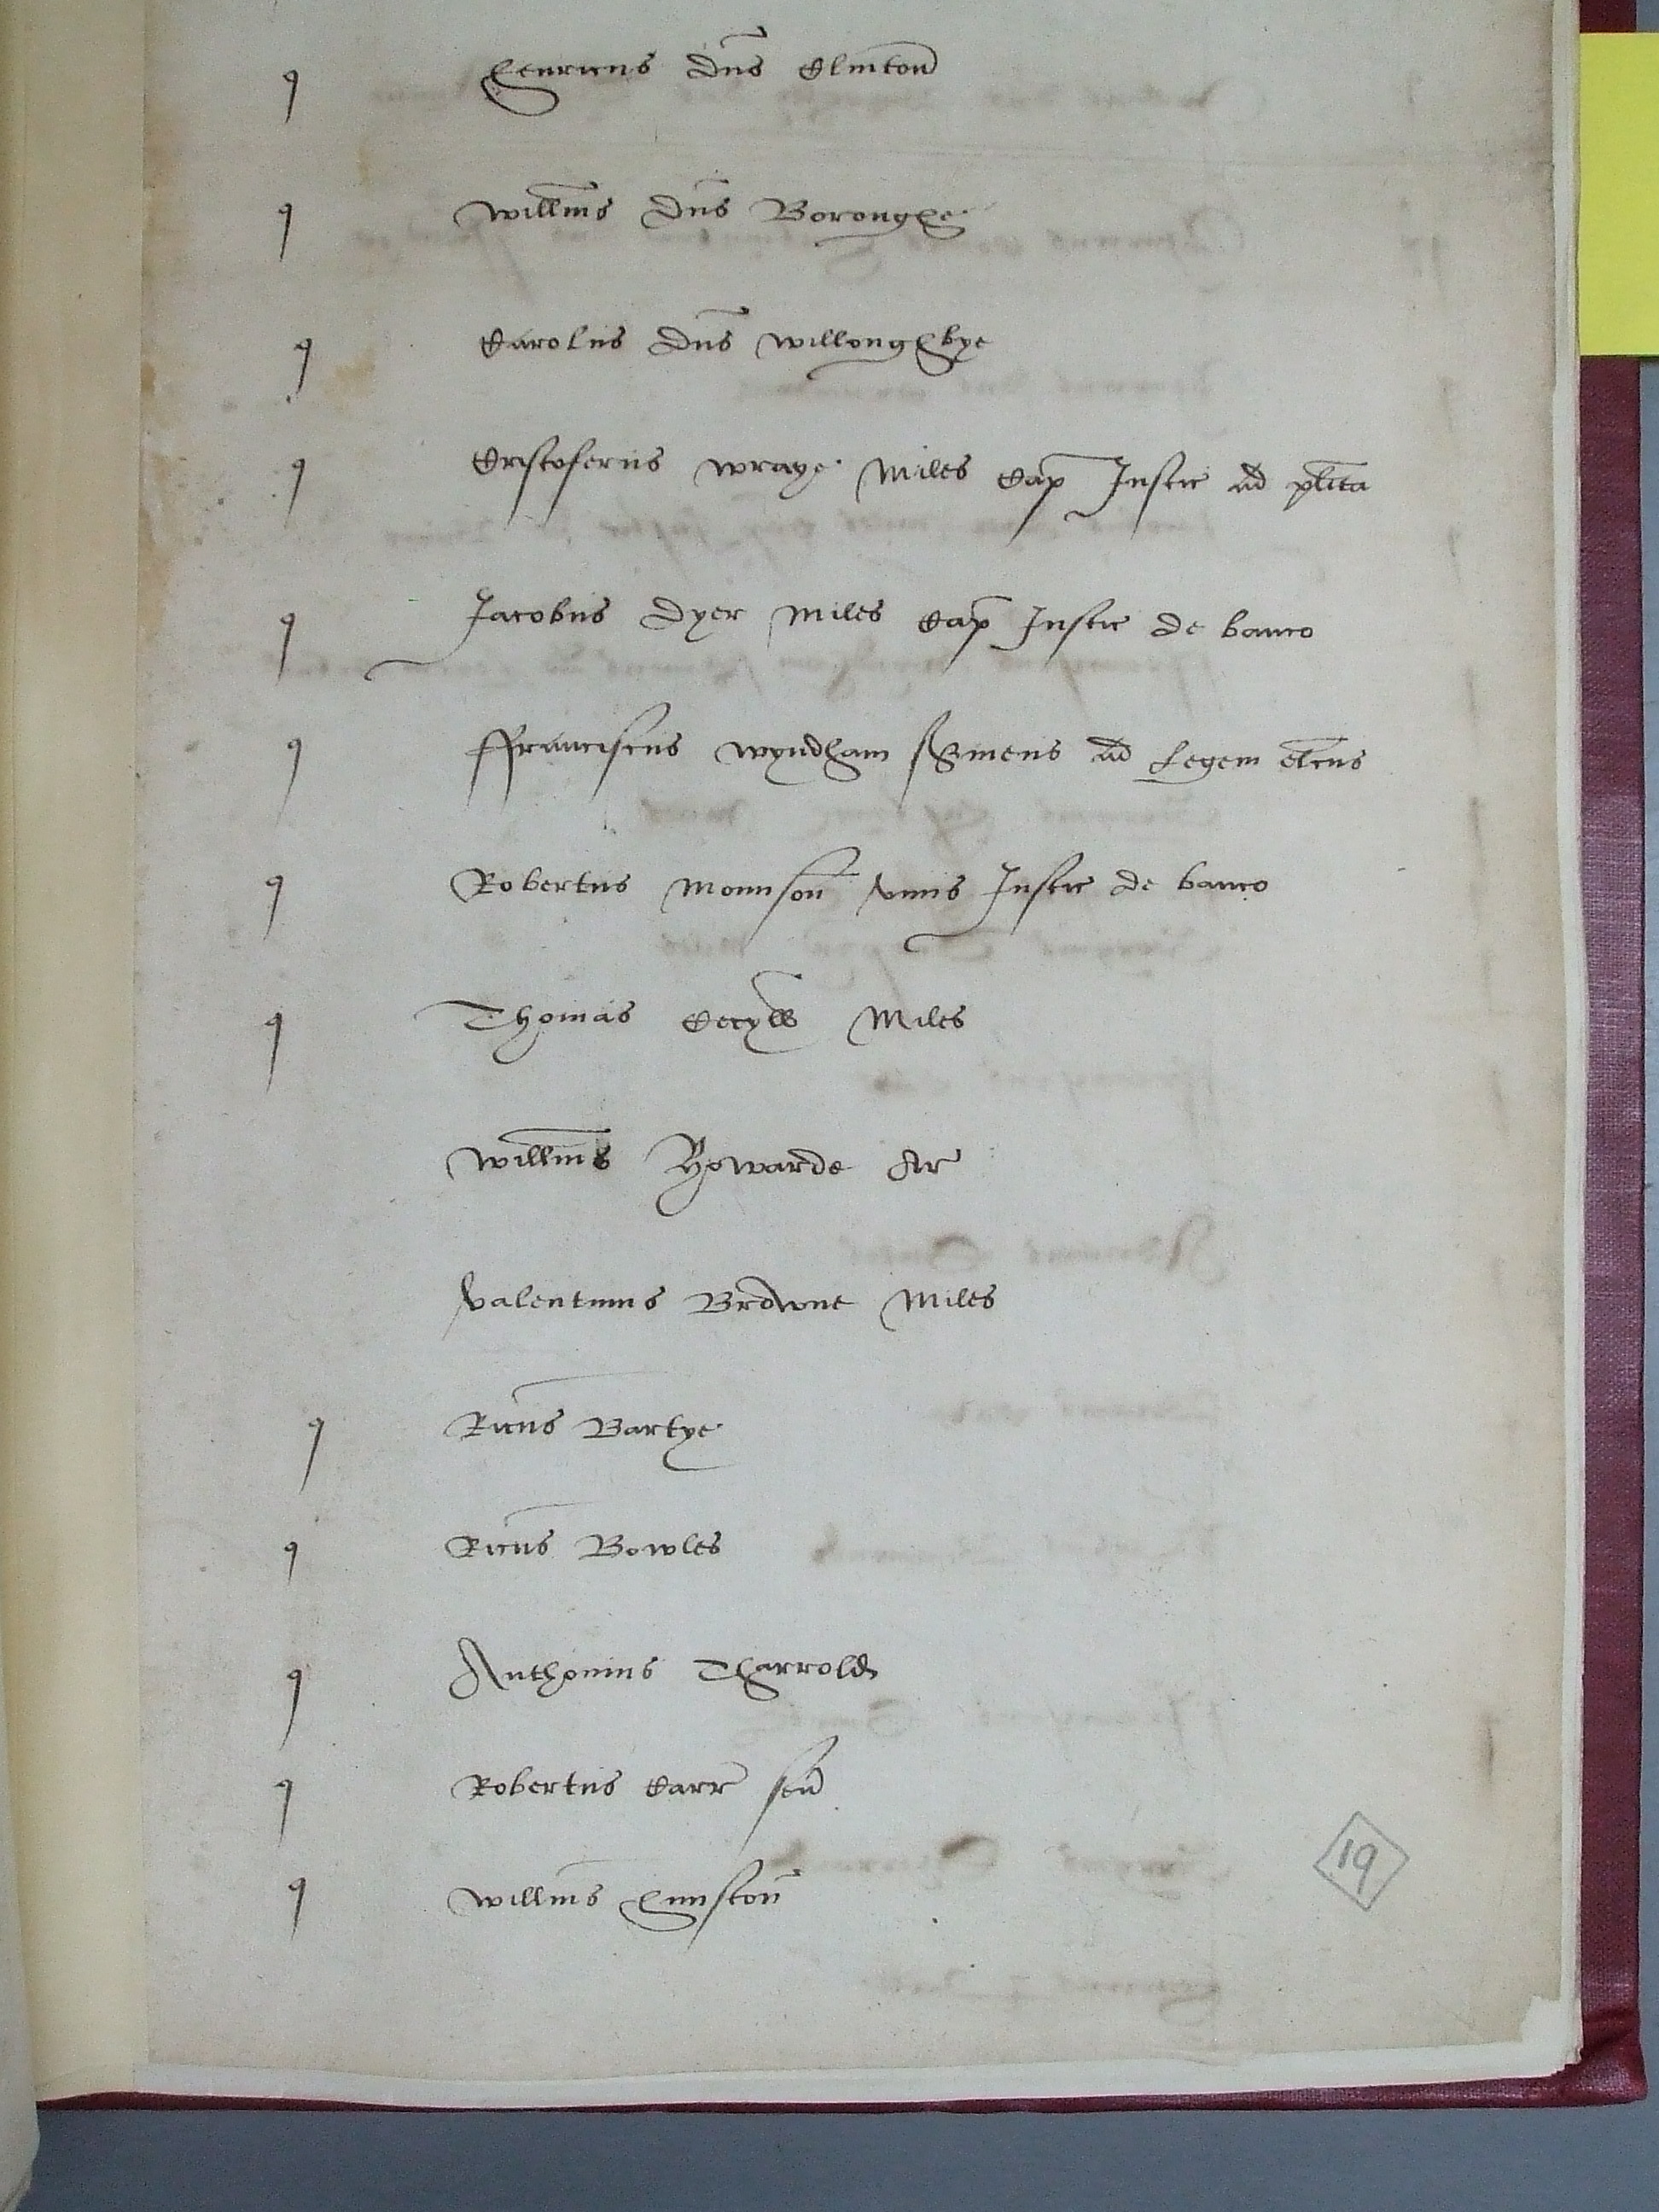 q Henricus Dns Clinton
q Willms Dns Boroughe
q Carolus Dns Willoughbye
q Cristoferus Wraye Miles Cap Justic ad plita
q Jacobus Dyer Miles Cap Justic de banco
q ffranciscus Wyndham s&iens ad Legem elcus
q Robertus Mounson vnus Justic de banco
q Thomas Cecyll Miles
Willms Howarde Ar
Valentinus Browne Miles
q Ricus Bartye
q Ricus Bowles
q Anthonius Tharrold
q Robertus Carr sen
q Willms Hunston
19